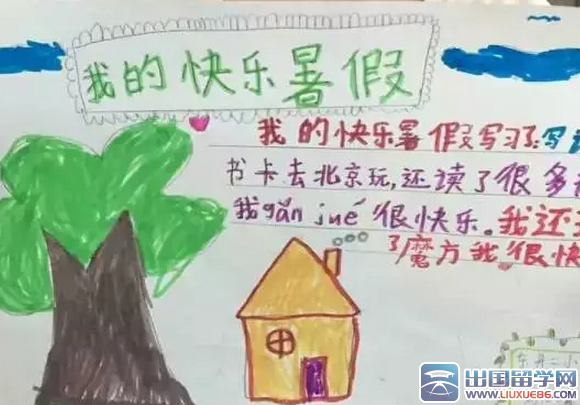 我的快乐暑假
我的快乐暑假写习了:写
书卡去北京玩,还读了很多
我gǎn jué很快乐。我还
了魔方我很快
出国留学网
WWW.LIUXUE86.COM